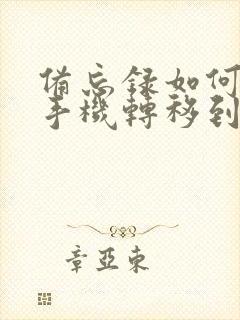 備忘録如何
手機轉移到
章亞東